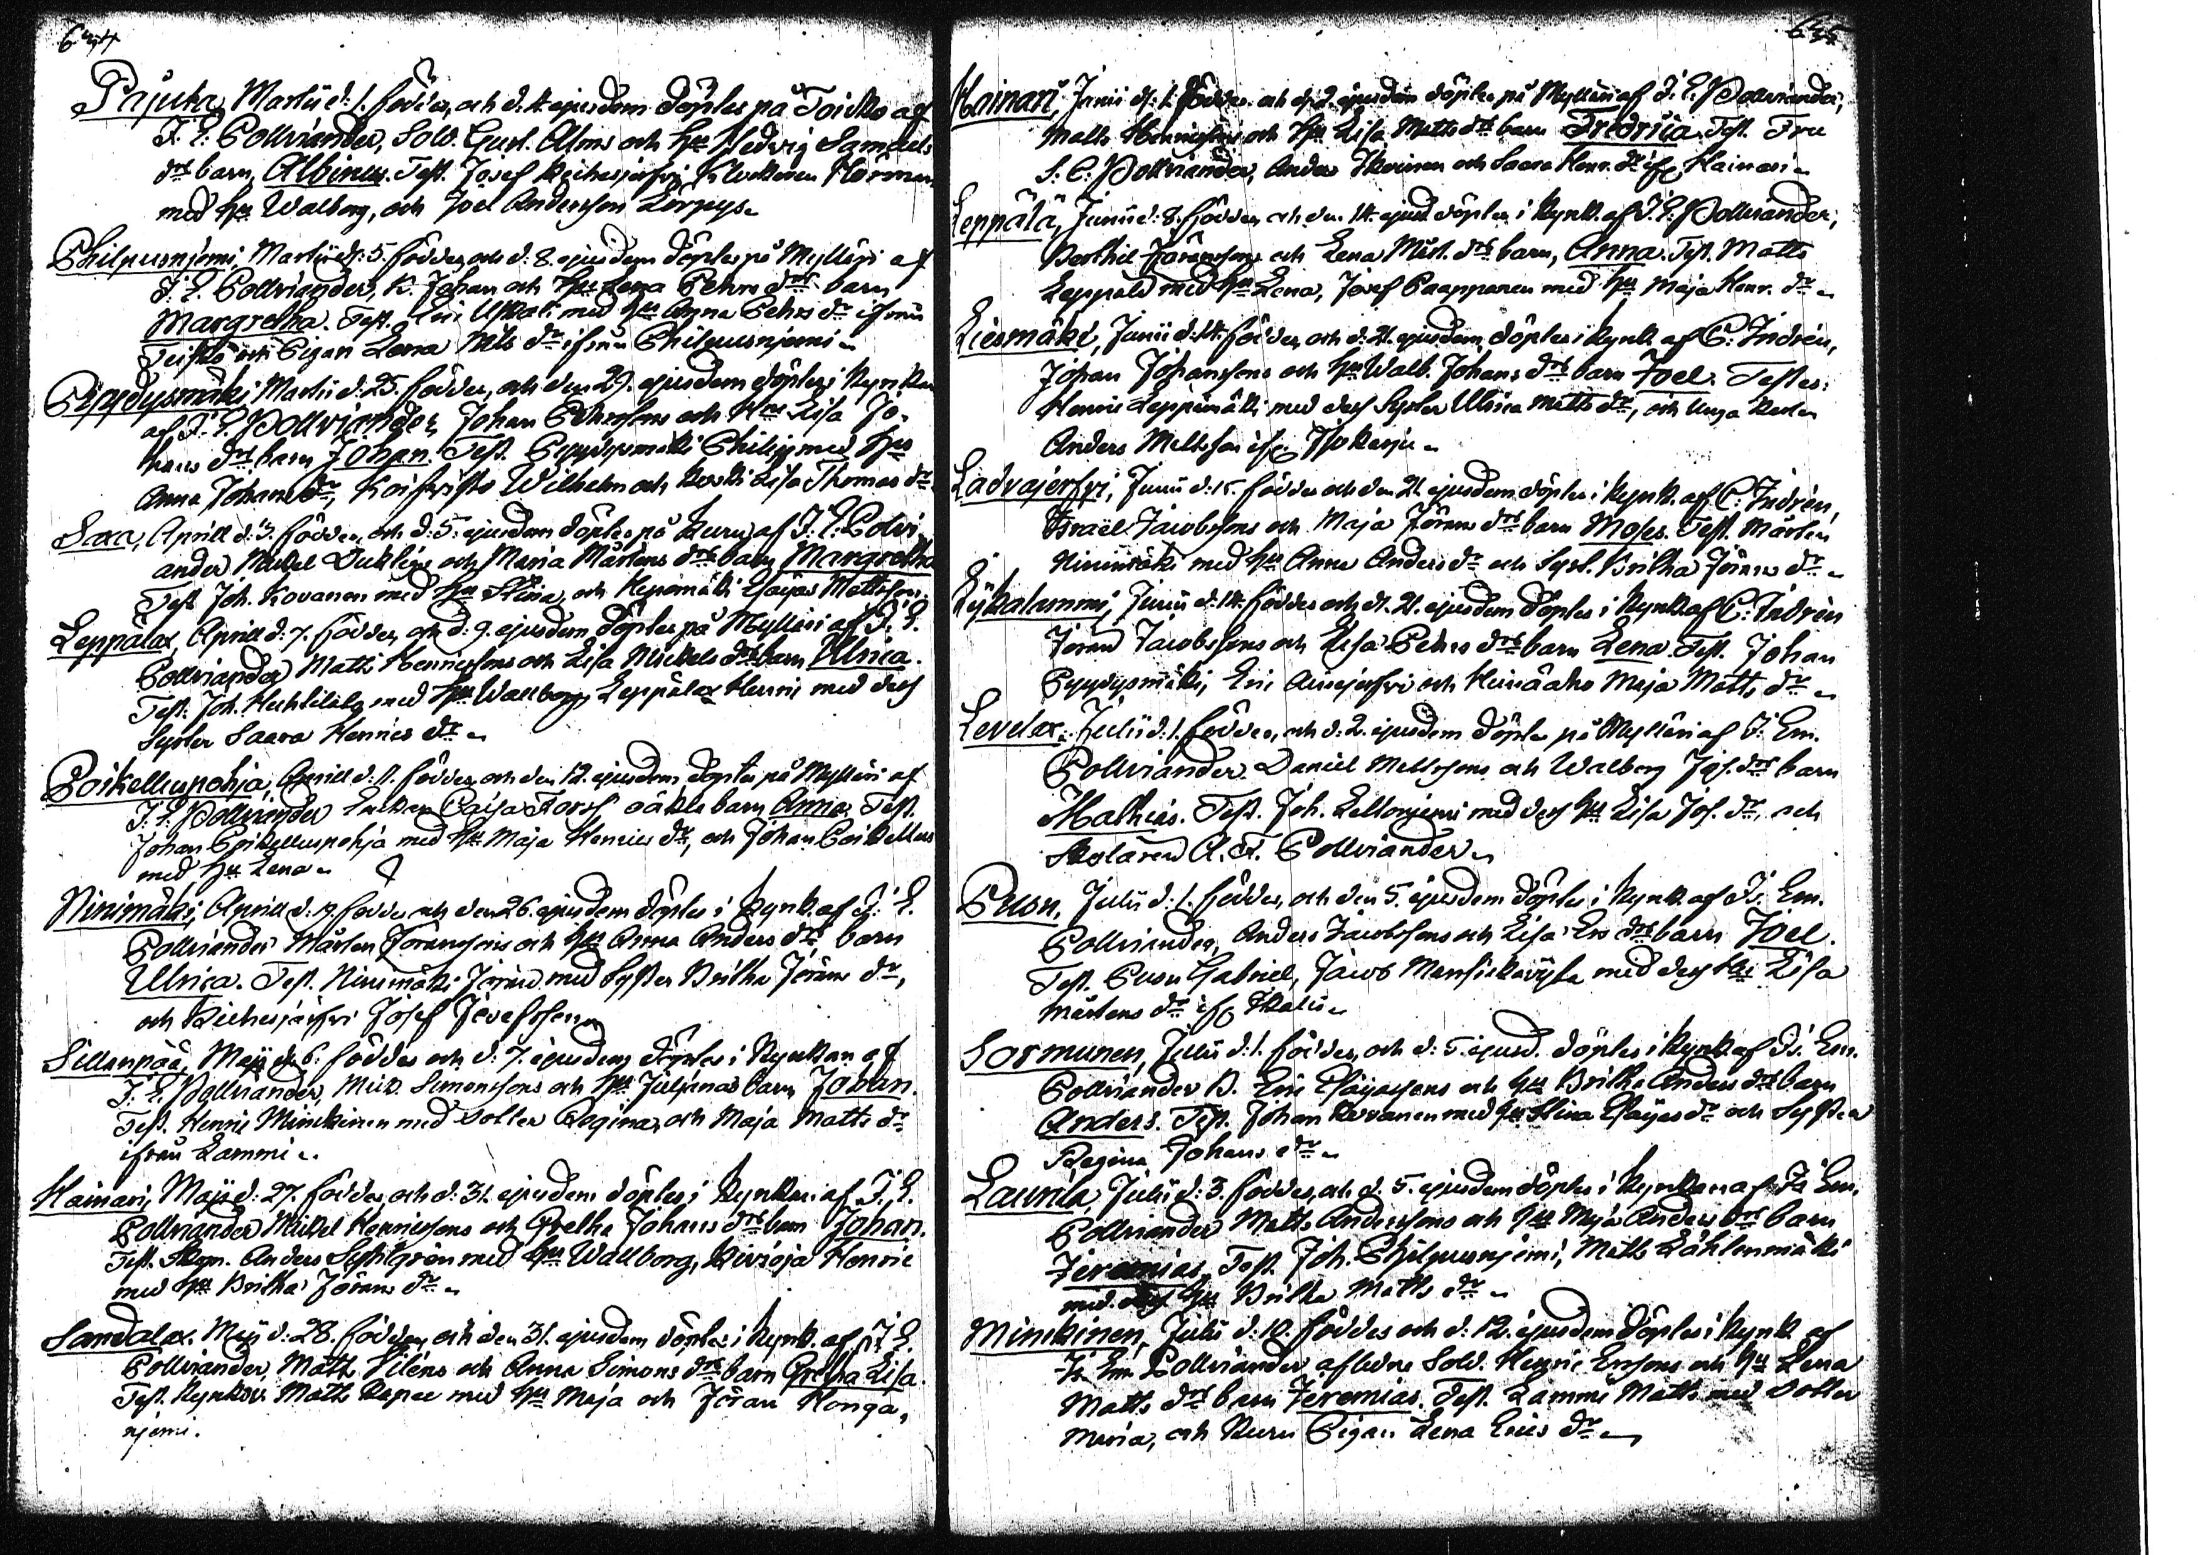 634
Pajuka, Martii d: 1. föddes, och d. 4 ejusdem döptes på Toicko af
J. E. Pollviander, Sold. Gust. Alms och Hu Hedvig Samuels
drs barn, Albinus. Test. Josef
med Hu Walborg, och Joel Andersson
Philpusnjemi, Martii d: 5. föddes, och d: 8. ejusdem döptes på Mylläri af
J. E. Pollviander, K. Johan och Hu Lena Pehrs drs barn
Margretha. Test. Eric med Hu Anna Pehrs dr ifrån
och Pigan Lena Nils dr ifrån Philpusnjemi
Pyydysmäki Martii d: 25. föddes, och den 29. ejusdem döptes i Kyrckan
af J. E. Pollviander, Johan Pehrssons och Hus Lisa Jo-
hans drs barn Johan. Test. Pyydysmäki Philip med Hus
Anna Johans dr, Wilhelm och Lisa Thomas dr
Saxa, Aprill d: 3. föddes, och d: 5. ejusdem döptes på Kuru af J. E. Polvi-
ander Mickel och Maria Mårtens drs barn Margretha
Test. Joh. Kovanen med Hu Stina, och Esaias Mattsson.
Leppälax, Aprill d: 7. föddes, och d: 9. ejusdem döptes på Mylläri af J. E.
Pollviander Matts Henricssons och Lisa Mickels drs barn Ulrica.
Test. Joh. med Hu Wallborg, Leppälax Henric med dess
Syster Saara Henrics dr
Poikelluspohja, Aprill d: 11. föddes, och den 12. ejusdem döptes på Mylläri af
J. E. Pollviander Enkan Caisa oäkta barn Anna, Test.
Johan Poikelluspohja med Hu Maja Henrics dr, och Johan Poikellus
med Hu Lena
Ninimäki, Aprill d: 19. föddes och den 26. ejusdem döptes i Kyrck. af J. E.
Pollviander Mårten Jöranssons och Hu Anna Anders drs barn
Ulrica. Test. Ninimäki Jöran med Syster Britha Jörans dr,
och Josef Josefsson
Sillanpää, Maji d: 6. föddes och d: 7. ejusdem döptes i Kyrckan af
J. E. Pollviander, Mick. Simonssons och Hu Julianas barn Johan.
Test. Henric Minckinen med Dotter Regina, och Maja Matts dr
ifrån Lammi
Hainari, Maji d: 27. föddes, och d: 31. ejusdem döptes i Kyrckan af J. E.
Pollviander Mickel Henricssons och Gretha Johans drs barn Johan.
Test. Anders med Hu Wallborg, Kivioja Henric
med Hu Britha Jörans dr
Sandalax. Maji d: 28. föddes, och den 31. ejusdem döptes i Kyrck. af J. E.
Pollviander, Matts och Anna Simons drs barn Gretha Lisa.
Test. Matts med Hu Maja och Jöran Konga-
njemi.
635
Hainari, Junii d: 1. föddes och d: 2. ejusdem döptes på Mylläri af J. E. Pollviander,
Matts Henricssons och Hu Lisa Matts drs barn Fredrica. Test. Fru
S. C. Pollviander, Anders och Saara Henr. dr ifr. Hainari
Leppälä, Junii d: 8. föddes, och den 14. ejusd. döptes i Kyrck. af J. E. Pollviander,
Berthil Jöranssons och Lena Mårt. drs barn, Anna. Test. Matts
Leppälä med Hu Lena, Josef Paappanen med Hu Maja Henr. dr
Liesmäki, Junii d: 14. föddes, och d: 21. ejusdem döptes i Kyrck. af C. Indrén,
Johan Johanssons och Hu Walb. Johans drs barn Joel. Testes:
Henric Leppämäki med dess Syster Ulrica Matts dr, och Unga Karlen
Anders Mattsson ifr.
Ladvajerfvi, Junii d: 15. föddes och den 21. ejusdem döptes i Kyrck. af C. Indrén,
Israel Jacobssons och Maja Jörans drs barn Moses. Test. Mårten
Ninimäki med Hu Anna Anders dr och Syst. Britha Jörans dr
Lykalammi, Junii d: 14. föddes och d: 21. ejusdem döptes i Kyrck. af C. Indrén
Jöran Jacobssons och Lisa Pehrs drs barn Lena. Test. Johan
Pyydysmäki, Eric och Heinäaho Maja Matts dr
Levelax, Julii d: 1. föddes, och d: 2. ejusdem döptes på Mylläri af J. Em.
Pollviander Daniel Mattssons och Walborg Jos. drs barn
Mathias. Test. Joh. med dess Hu Lisa Jos. dr, och
Skolären A. F. Pollviander
Puson, Julii d: 1. föddes, och den 5. ejusdem döptes i Kyrck. af J. Em.
Pollviander, Anders Jacobssons och Lisa Ers drs barn Joel.
Test. Puson Gabriel, Jacob Mansickavijta med dess Hu Lisa
Mårtens dr ifr.
Sormunen, Julii d: 1. föddes, och d: 5. ejusd. döptes i Kyrck. af J. Em.
Pollviander B. Eric Esaiassons och Hu Britha Anders drs barn
Anders. Test. Johan Kovanen med Hu Stina Esaias dr och Syster
Regina Johans dr
Laurila, Julii d: 3. föddes, och d. 5. ejusdem döptes i Kyrckan af J. Em.
Pollviander Matts Anderssons och Hu Maja Anders drs barn
Jeremias, Test. Joh. Philpusnjemi, Matts Lähtenmäki
med dess Hu Britha Matts dr
Minckinen, Julii d: 10. föddes och d: 12. ejusdem döptes i Kyrck. af
J. Em. Pollviander aflidne Sold. Henric Ersons och Hu Lena
Matts drs barn Jeremias. Test. Lammi Matts med Dotter
Maria, och Kuru Pigan Lena Erics dr